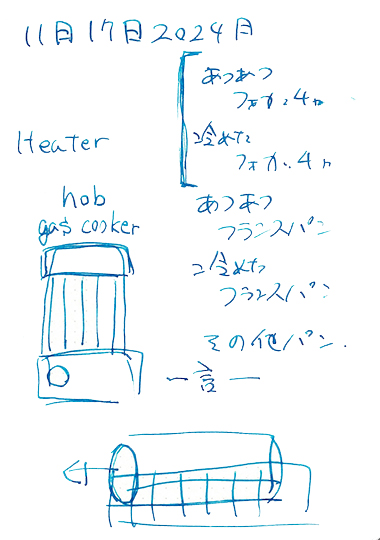 11月17日2024月
あつあつ
フォカッチャ
冷めた
フォカッチャ
Heater
hob
gas cooker
あつあつ
フランスパン
冷めた
フランスパン
その他パン.
一言一